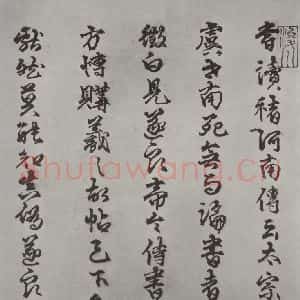 昔讀褚河南傳云太宗
虞世南死無與論書者
徵白見遂良帝令侍書
方博購羲故帖天下
獻然莫能知真偽遂良
shufawang.cn